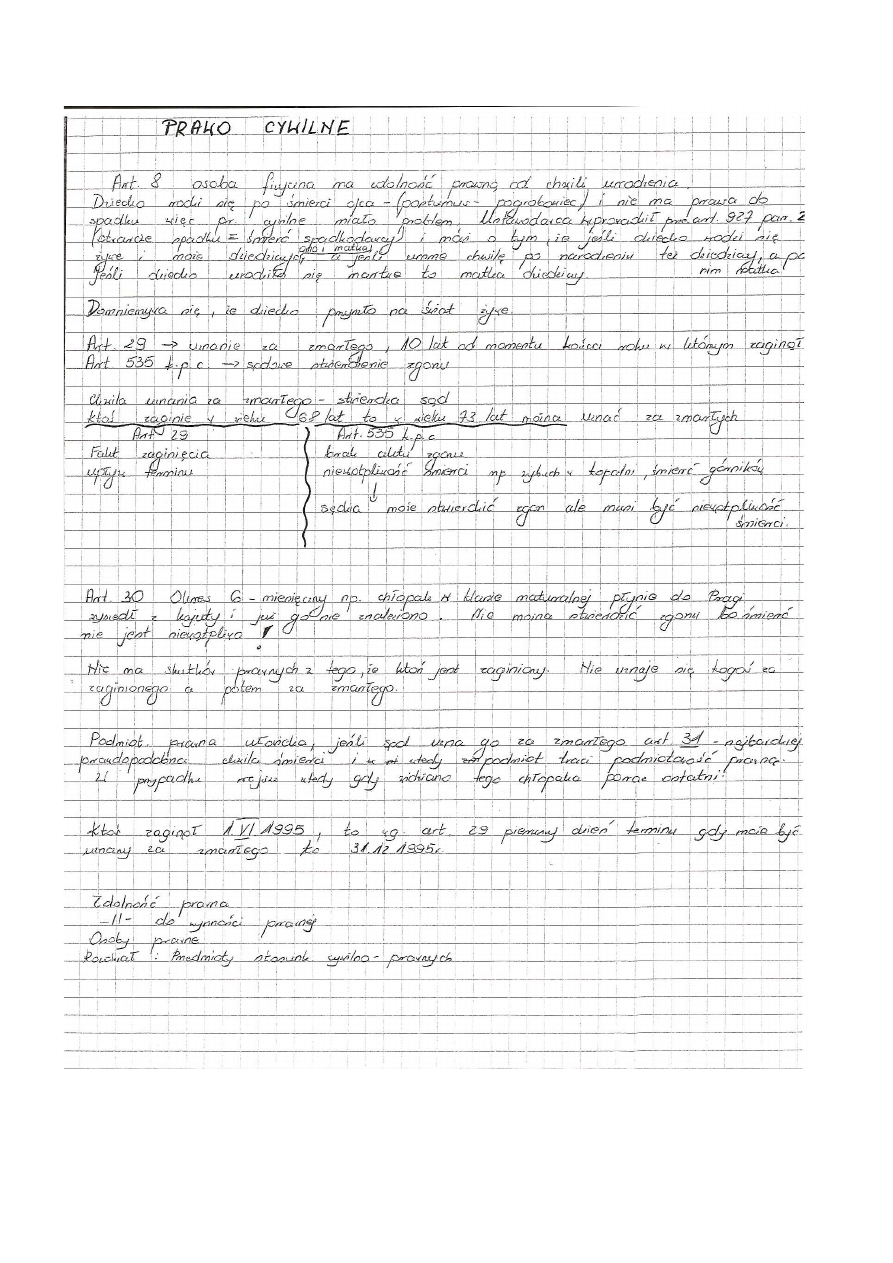 PRAWO CYWILNE
Art. 8 osoba fizyczna ma zdolność prawną od chwili urodzenia.
Dziecko rodzi się po śmierci ojca - (postumus - pogrobowiec) i nie ma prawa do
spadku więc pr. cywilne miało problem. Ustawodawca wprowadził art. 927 par. 2
(otwarcie spadku = śmierć spadkodawcy) i mówi o tym, że jeśli dziecko rodzi się
ono i matka
żywe i może dziedziczyć, a jeśli umrze chwilę po narodzeniu też dziedziczy, a po
Jeśli dziecko urodziło się martwe to matka dziedziczy. nim matka!
Domniemywa się, że dziecko przyszło na świat żywe.
Art. 29 → uznanie za zmarłego, 10 lat od momentu końca roku w którym zaginął
Art 535 k.p.c → sądowe stwierdzenie zgonu
Chwila uznania za zmarłego - stwierdza sąd
ktoś zaginie w wieku 68 lat to w wieku 73 lat można uznać za zmarłych
Art 29 Art. 535 k.p.c
Fakt zaginięcia brak aktu zgonu
upływ terminu niewątpliwość śmierci np wybuch w kopalni, śmierć górników
↓
sędzia może stwierdzić zgon ale musi być niewątpliwość
śmierci.
Art. 30 Okres 6 - miesięczny np. chłopak w klasie maturalnej płynie do Pragi
wyszedł z kajuty i już go nie znaleziono. Nie można stwierdzić zgonu bo śmierć
nie jest niewątpliwa !
Nic ma skutków prawnych z tego, że ktoś jest zaginiony. Nie uznaje się kogoś za
zaginionego a potem za zmarłego.
Podmiot. prawna człowieka, jeśli sąd uzna go za zmarłego art. 31 - najbardziej
prawdopodobna chwila śmierci i wtedy podmiot traci podmiotowość prawną.
W przypadku rejsu wtedy gdy widziano tego chłopaka poraz ostatni!
Ktoś zaginął 1.VI.1995, to wg. art. 29 pierwszy dzień terminu gdy może być
uznany za zmarłego to 31.12.1995r.
Zdolność prawna
-II- do czynności prawnej
Osoby prawne
Rozdział : Przedmioty stosunk. cywilno - prawnych